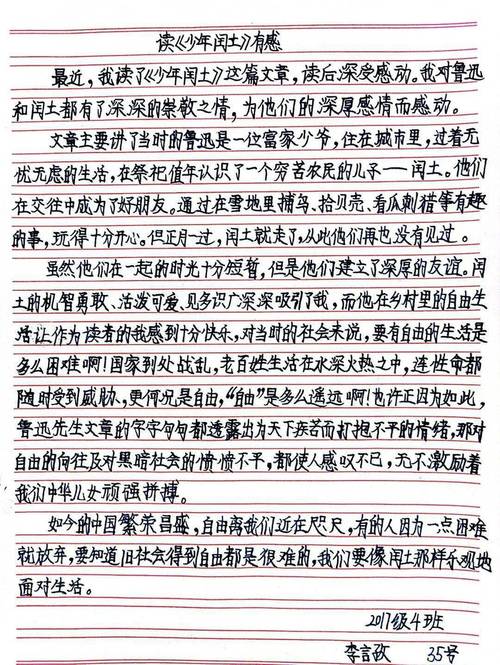 读《少年闰土》有感
最近，我读了《少年闰土》这篇文章，读后深受感动。我对鲁迅
和闰土都有了深深的崇敬之情，为他们的深厚感情而感动。
文章主要讲了当时的鲁迅是一位富家少爷，住在城市里，过着无
忧无虑的生活，在祭祀值年认识了一个穷苦农民的儿子——闰土。他们
在交往中成为了好朋友。通过在雪地里捕鸟、拾贝壳、看瓜刺猹等有趣
的事，玩得十分开心。但正月一过，闰土就走了，从此他们再也没有见过。
虽然他们在一起的时光十分短暂，但是他们建立了深厚的友谊。闰
土的机智勇敢、活泼可爱、见多识广深深吸引了我，而他在乡村里的自由生
活让作为读者的我感到十分快乐，对当时的社会来说，要有自由的生活是
多么困难啊！国家到处战乱，老百姓生活在水深火热之中，连性命都
随时受到威胁，更何况是自由，“自由”是多么遥远啊！也许正因为如此，
鲁迅先生文章的字字句句都透露出为天下疾苦而打抱不平的情绪，那对
自由的向往及对黑暗社会的愤愤不平，都使人感叹不已，无不激励着
我们中华儿女顽强拼搏。
如今的中国繁荣昌盛，自由离我们近在咫尺，有的人因为一点困难
就放弃，要知道旧社会得到自由都是很难的，我们要像闰土那样乐观地
面对生活。
2017级4班
李言孜 35号